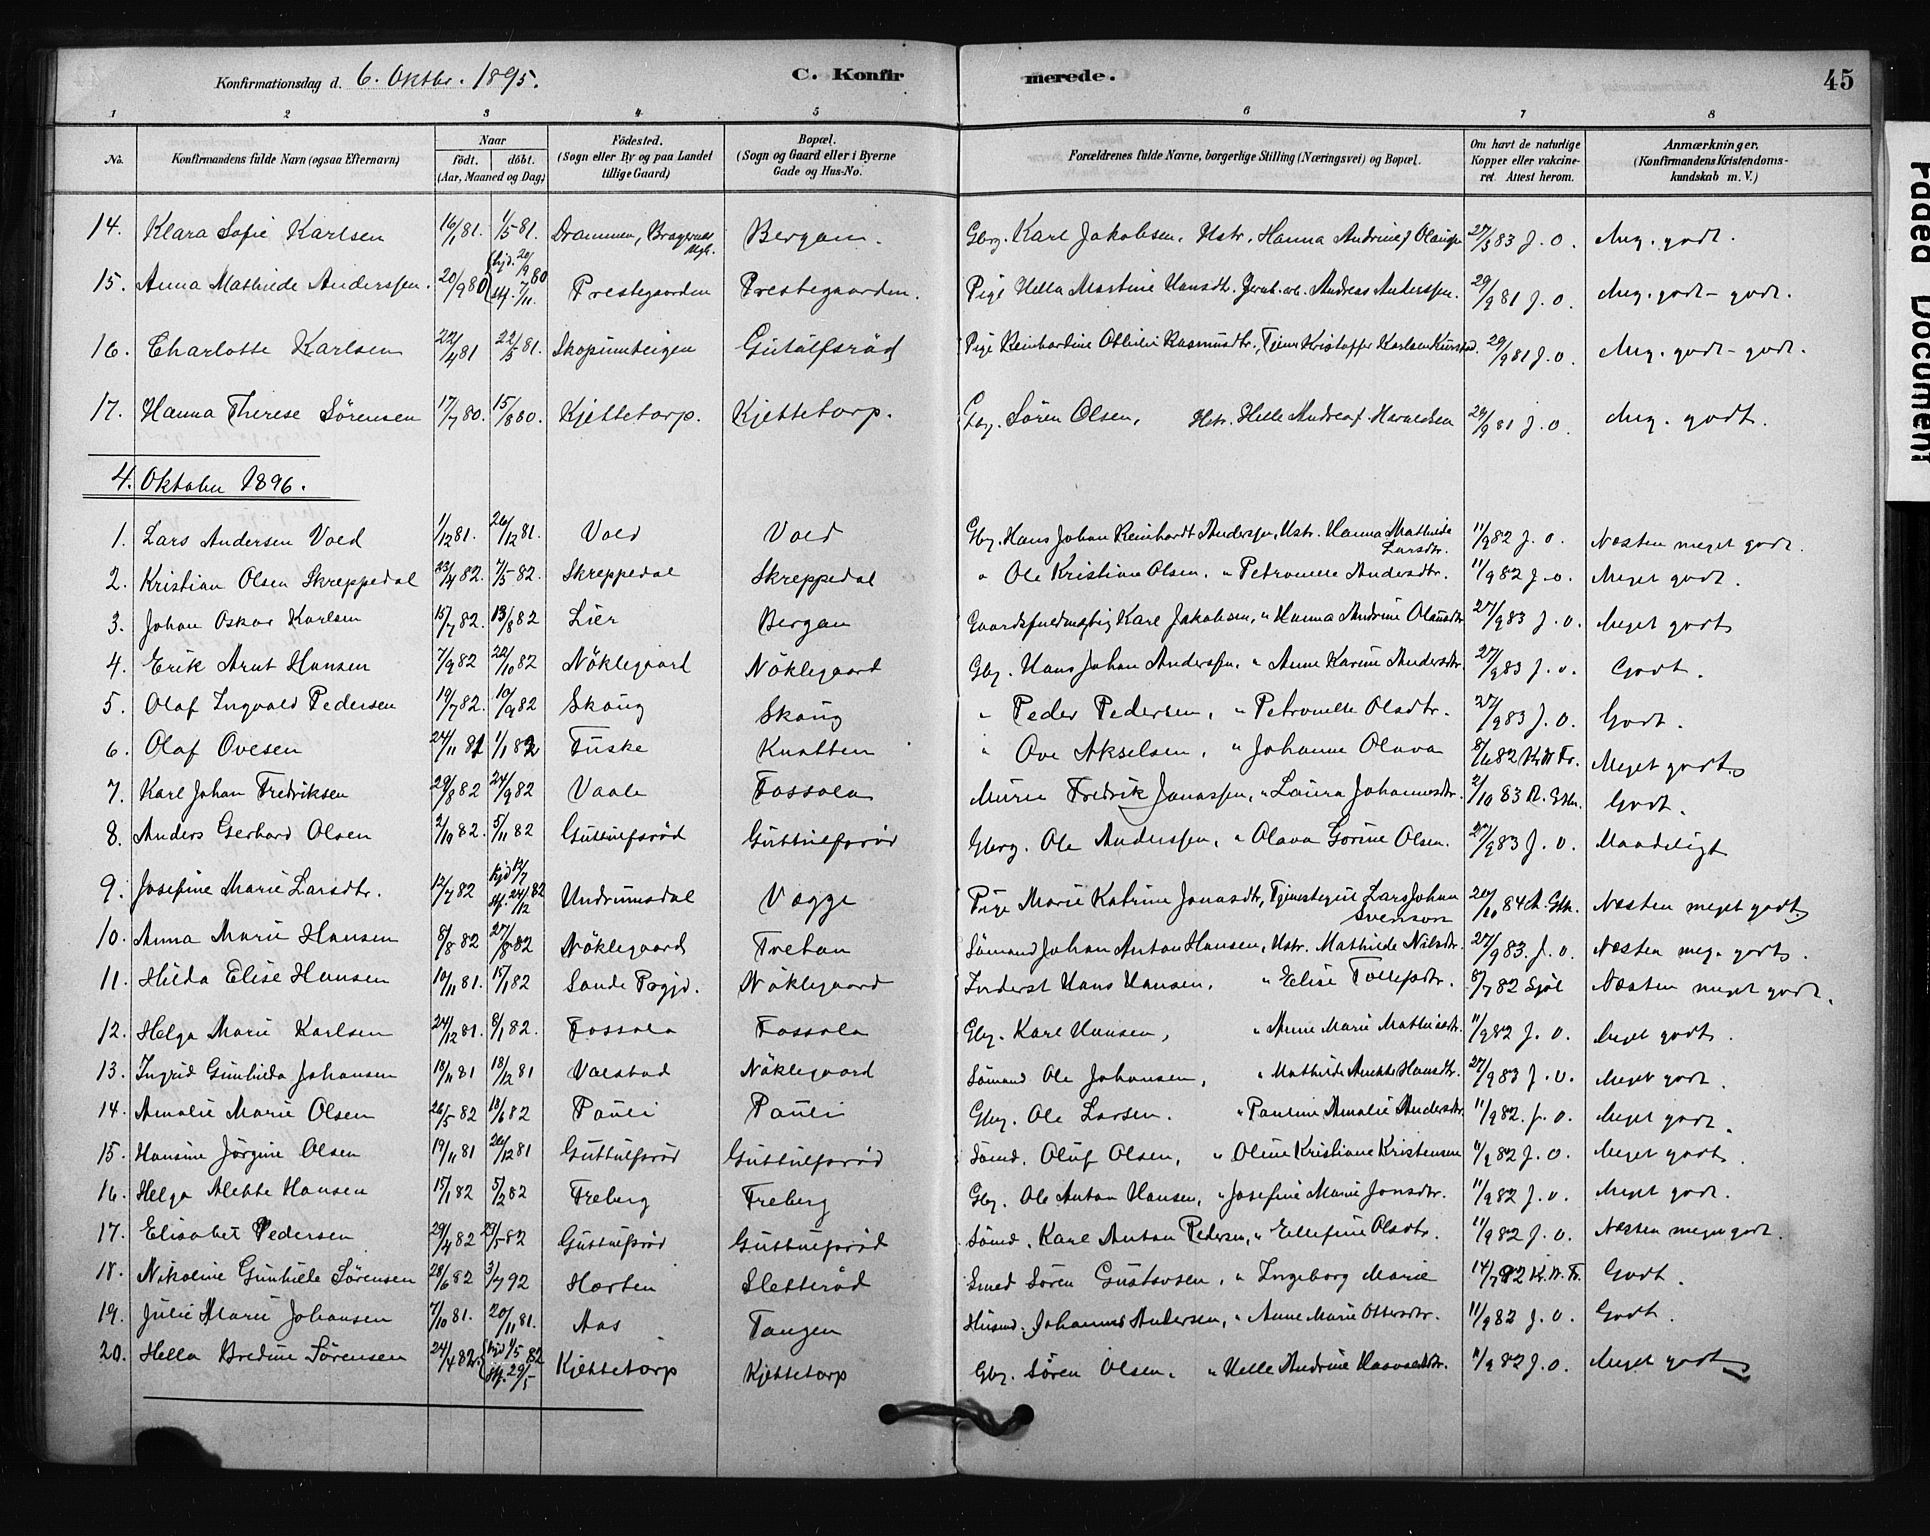 Konfirmationsdag d. 6. Oktbr. 1895. C. Konfirmerede. 45
1 2 3 4 5 6 7 8
No. Konfirmandens fulde Navn (ogsaa Efternavn) Naar født. døbt. (Aar, Maaned og Dag) Fødested. (Sogn eller By og paa Landet tillige Gaard) Bopæl. (Sogn og Gaard eller i Byerne Gade og Hus-No. Forældrenes fulde Navne, borgerlige Stilling (Næringsvei) og Bopæl. Om havt de naturlige Kopper eller vakcineret. Attest herom. Anmærkninger. (Konfirmandens Kristendomskundskab m. V.)
14. Klara Sofie Karlsen 16/1 81. 1/5 81. Drammen, Bragernes Bergan. Gbrg. Karl Jakobsen, Hstr. Hanna Andrine 27/9 83 J. O. Meg. godt.
15. Anna Mathilde Anderssen. 20/9 80 hjd. 20/9 80 stf. 7/11. Prestegaarden Prestegaarden. Pige Hella Martine Hansdtr. Andreas Anderssen. 29/9 81 J. O. Meg. godt - godt.
16. Charlotte Karlsen 22/4 81 22/5 81. Skopumteigen Gutulfsrød Pige Reinhardine Othilie Rasmusdtr., Tjener Kristoffer Karlsen 29/9 81 J. O. Meg. godt - godt.
17. Hanna Therese Sørensen 17/7 80. 15/8 80. Kjettetorp. Kjettetorp. Gbg. Søren Olsen, Hstr. Helle Andrea f. Haraldsen 29/9 81 J. O. Meg. godt.
4. Oktober 1896.
1. Lars Andersen Vold 1/12 81. 26/12 81. Vold Vold Gbg. Hans Johan Reinhardt Andersen, Hstr. Hanna Mathilde Larsdtr. 11/9 82 J. O. Næsten meget godt.
2. Kristian Olsen Skreppedal 23/4 82. 7/5 82. Skreppedal Skreppedal " Ole Kristian Olsen. " Petronelle Andersdtr. 11/9 82 J. O. Meget godt.
3. Johan Oskar Karlsen 15/7 82. 13/8 82 Lier Bergan Gaardsfuldmægtig Karl Jakobsen, " Hanna Andrine Olausdtr 27/9 83 J. O. Meget godt
4. Erik Arnt Hansen 7/9 82 22/10 82 Nøklegaard Nøklegaard Gbg. Hans Johan Anderssen, " Anne Karine Andersdtr. 27/9 83 J. O. Godt.
5. Olaf Ingvald Pedersen 19/7 82. 10/9 82 Skoug Skoug " Peder Pedersen, " Petronelle Olsdtr. 27/9 83 J. O. Godt.
6. Olaf Ovesen 24/11 81 1/1 82 Fuske Knatten " Ove Akselsen, " Johanne Olava 8/6 82 Meget godt
7. Karl Johan Fredriksen 29/8 82 24/9 82 Vaale Fossola Murer Fredrik Jonassen, " Laura Johannesdtr. 2/10 83 Godt.
8. Anders Gerhard Olsen 2/10 82. 5/11 82 Guttulfsrød Guttulfsrød Gbrg. Ole Anderssen, " Olava Gorine Olsen. 27/9 83 J. O. Maadeligt
9. Josefine Marie Larsdtr. 12/7 82 hjd 13/7 stf. 24/12 82 Undrumsdal Vagge Pige Marie Katrine Jonasdtr., Tjenestegut Lars Johan Svenson 20/10 84 Næsten meget godt
10. Anna Marie Hansen 8/8 82 27/8 82 Nøklegaard Tretan Sømand Johan Anton Hansen, Hstr. Mathilde Nilsdtr. 27/9 83. J. O. Næsten meg. godt.
11. Hilda Elise Hansen 10/11 81. 15/1 82 Sande Prgjd. Nøklegaard Inderst Hans Hansen. " Elise Tollefsdtr. 8/7 82 Næsten meget godt.
12. Helga Marie Karlsen 24/12 81. 8/1 82. Fossola Fossola Gbg. Karl Hansen, " Anne Marie Mathisdtr. 11/9 82 J. O. Meget godt.
13. Ingrid Gunhilda Johansen 18/11 81 18/12 81 Valstad Nøklegaard Sømand Ole Johansen, " Mathilde Hansdtr. 27/9 83 J. O. Meget godt.
14. Amalie Marie Olsen 26/5 82 18/6 82 Pauli Pauli Gbg. Ole Larsen. " Pauline Amalie Andersdtr. 11/9 82. J. O. Meget godt.
15. Hansine Jørgine Olsen 19/11 81 26/12 81 Guttulfsrød Guttulfsrød Sømd. Oluf Olsen, " Oline Kristiane Kristensen 11/9 82 J. O. Meget godt.
16. Helga Alette Hansen 15/1 82 5/2 82 Freberg Freberg Gbg. Ole Anton Hansen, " Josefine Marie Jonsdtr. 11/9 82 J. O. Meget godt.
17. Elisabet Pedersen 29/4 82 29/5 82 Guttulfsrød Guttulfsrød Sømd. Karl Anton Pedersen, " Ellefine Olsdtr. 11/9 82 J. O. Næsten meget godt.
18. Nikoline Gunhilde Sørensen 28/6 82 3/7 92 Horten Sletterød Smed Søren Gustavsen, " Ingeborg Marie 14/7 92 Godt.
19. Julie Marie Johansen 7/10 81. 20/11 81. Aas Tangen Husmd. Johannes Andersen, " Anne Marie Ottersdtr. 11/9 82 J. O. Godt.
20. Hella Bredine Sørensen 24/4 82. hjd 1/5 82 stf. 29/5 Kjettetorp Kjettetorp Gbg. Søren Olsen, " Helle Andrine Haavaldsdtr. 11/9 82 J. O. Meget godt
Faded Document